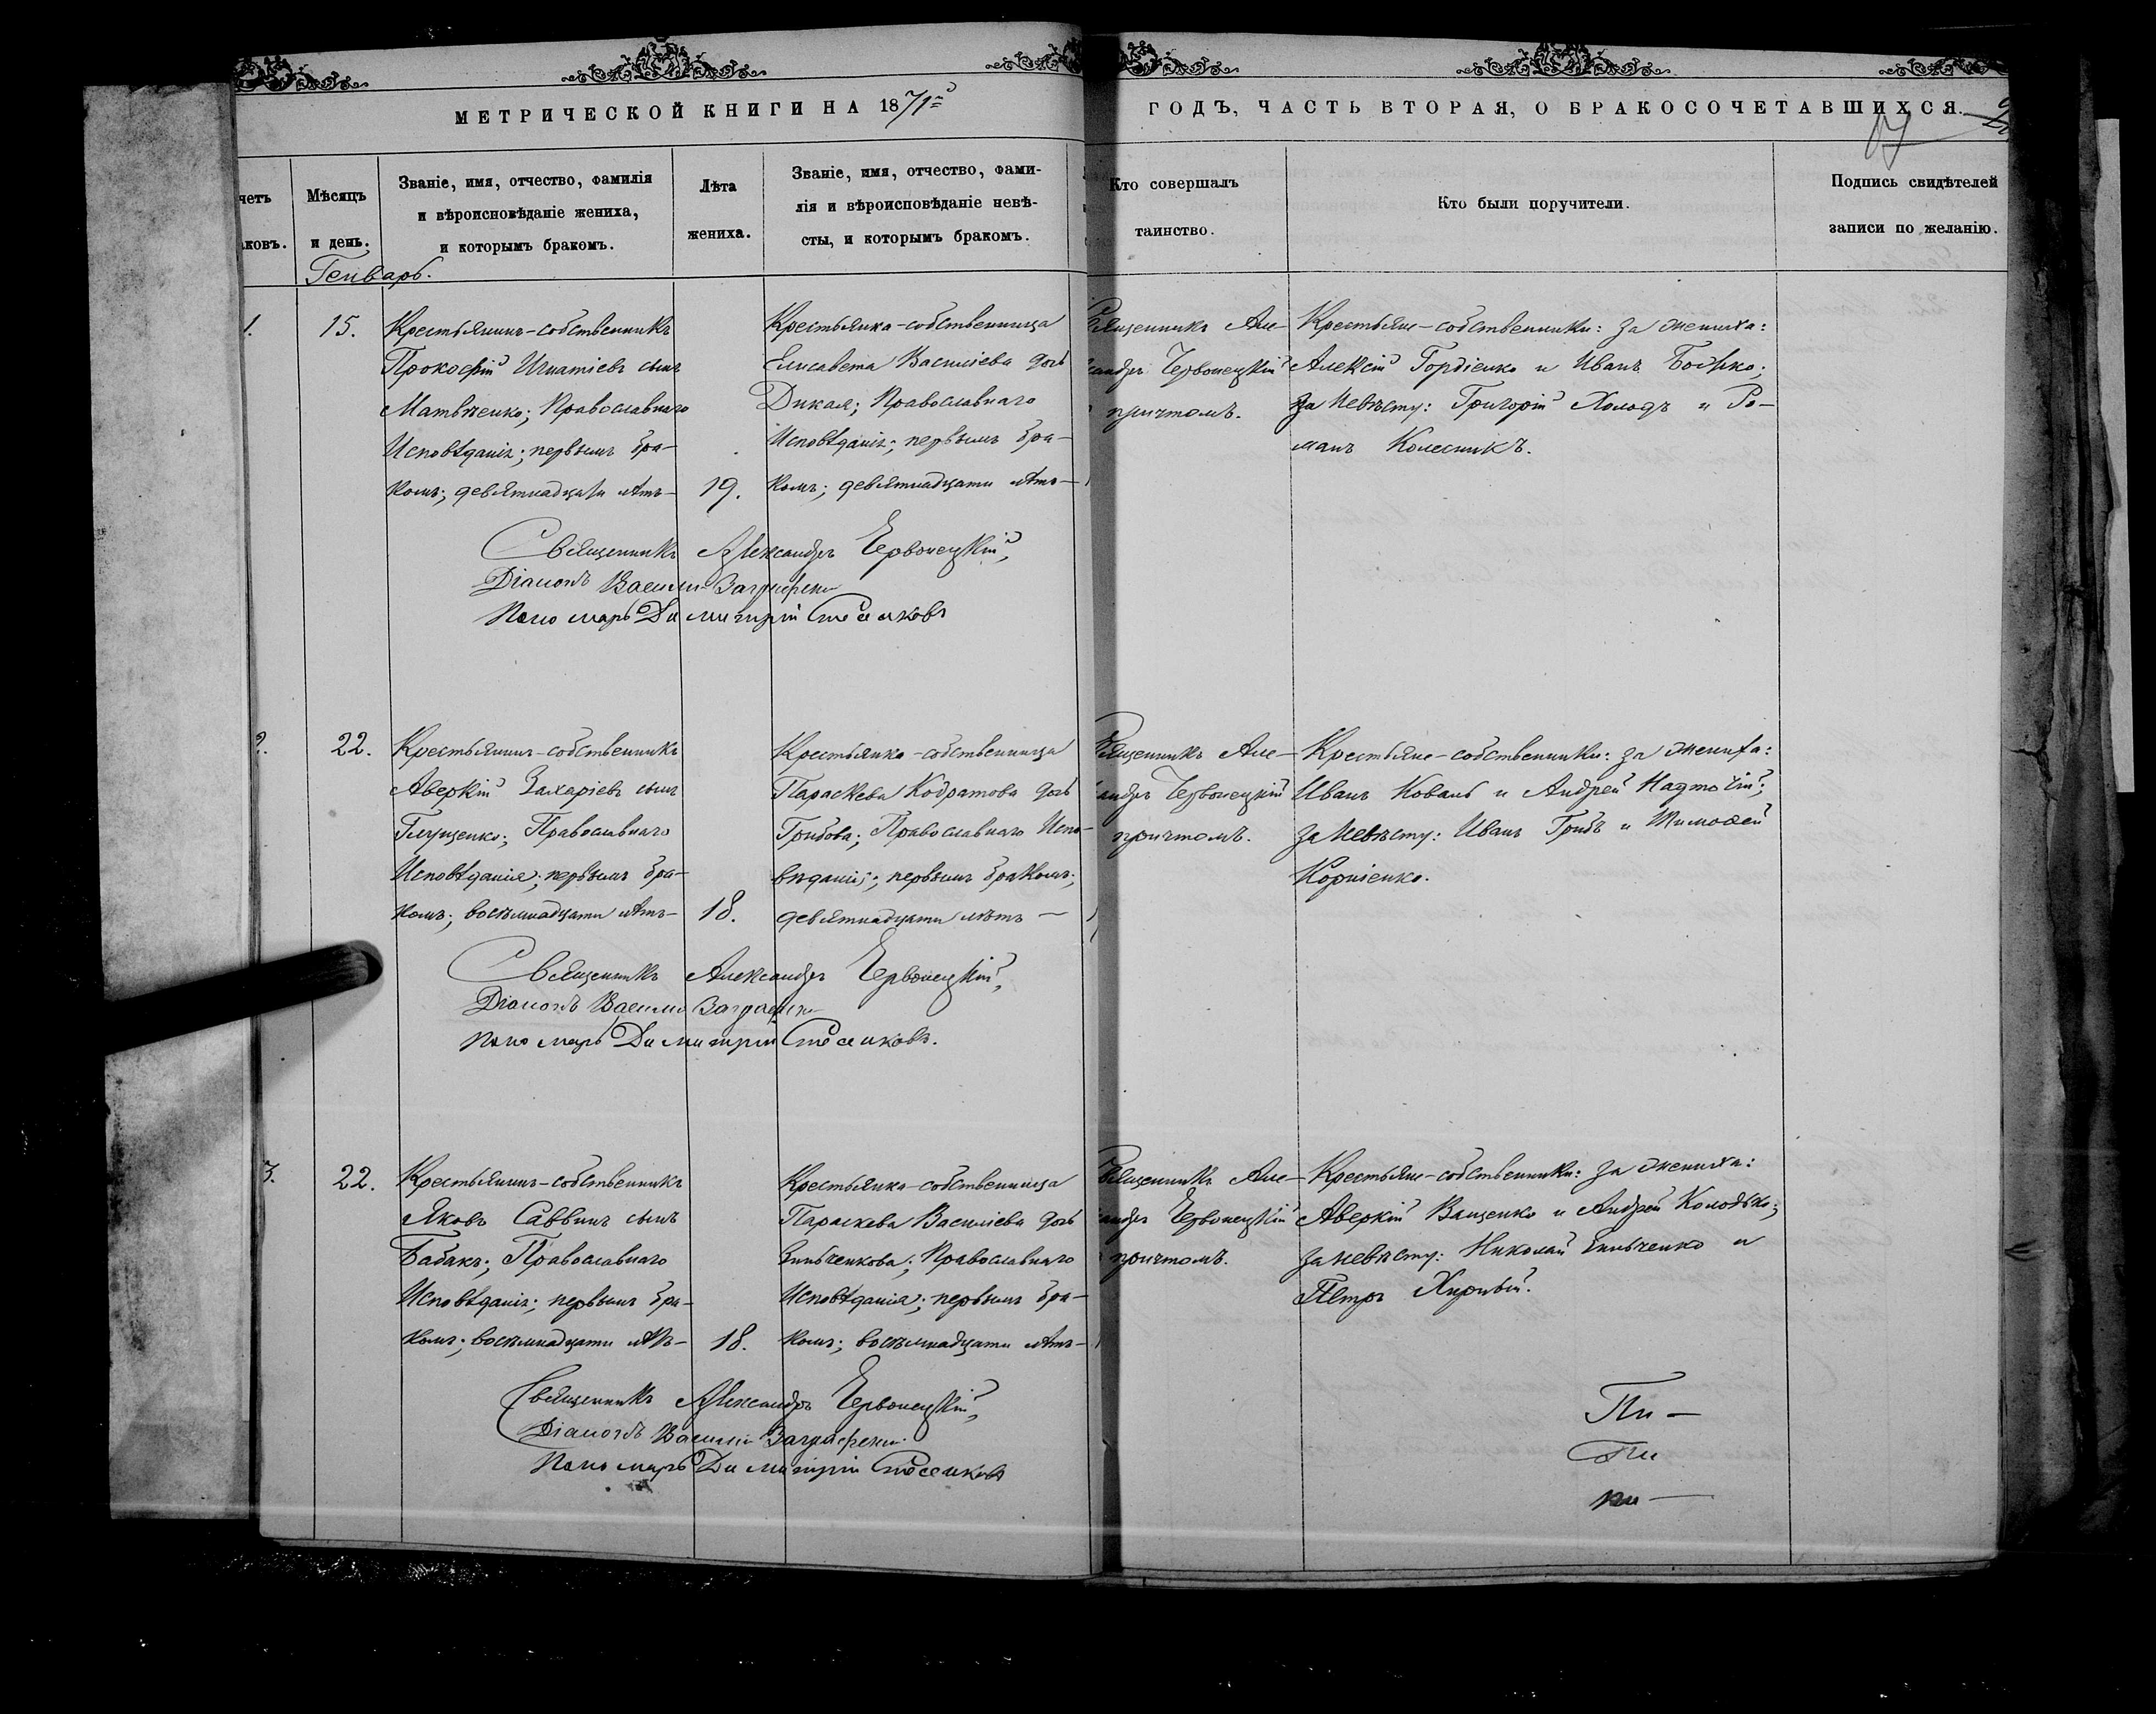 МЕТРИЧЕСКОЙ КНИГИ НА 1871й
ГОДЪ, ЧАСТЬ ВТОРАЯ, О БРАКОСОЧЕТАВШИХСЯ.
четъ
ковъ.
Мѣсяцъ
и день.
Званіе, имя, отчество, фамилія
и вѣроисповѣданіе жениха,
и которымъ бракомъ.
Лѣта
жениха.
Званіе, имя, отчество, фами-
лія и вѣроисповѣданіе невѣ-
сты, и которымъ бракомъ.
Кто совершалъ
таинство.
Кто были поручители.
Подпись свидѣтелей
записи по желанію.
Генварь.
1.
15.
Крестьянинъ-собственникъ
Прокофій Игнатіевъ сынъ
Матвѣенко; Православнаго
Исповѣданія; первымъ бра-
комъ; девятнадцати лѣтъ-
19.
Крестьянка-собственница
Елисавета Василіева дочь
Дикая; Православнаго
Исповѣданія; первымъ бра-
комъ; девятнадцати лѣтъ-
Священникъ Але-
ксандръ Червонецкій
причтомъ.
Крестьяне-собственники: за жениха:
Алексій Гордіенко и Иванъ Божко;
за невѣсту: Григорій Холодъ и Ро-
манъ Колесникъ.
Священникъ Александръ Червонецкій,
Діаконъ Василій
Пономарь Димитрій
2.
22.
Крестьянинъ-собственникъ
Аверкій Захаріевъ сынъ
Глущенко; Православнаго
Исповѣданія; первымъ бра-
комъ; восьмнадцати лѣтъ-
18.
Крестьянка-собственница
Параскева Кодратова дочь
Грибова; Православнаго Испо-
вѣданія; первымъ бракомъ;
девятнадцати лѣтъ -
Священникъ Але-
ксандръ Червонецкій
причтомъ.
Крестьяне-собственники: за жениха:
Иванъ Коваль и Андрей Надточій;
за невѣсту: Иванъ Грибъ и Тимофей
Корніенко.
Священникъ Александръ Червонецкій,
Діаконъ Василій
Пономарь Димитрій
3.
22.
Крестьянинъ-собственникъ
Яковъ Саввинъ сынъ
Бабакъ; Православнаго
Исповѣданія; первымъ бра-
комъ; восьмнадцати лѣтъ-
18.
Крестьянка-собственница
Параскева Василіева дочь
Православнаго
Исповѣданія; первымъ бра-
комъ; восьмнадцати лѣтъ-
Священникъ Але-
ксандръ Червонецкій
причтомъ.
Крестьяне-собственники: за жениха:
Аверкій Ващенко и Андрей Колодько;
за невѣсту: Николай и
Петръ
Священникъ Александръ Червонецкій,
Діаконъ Василій
Пономарь Димитрій